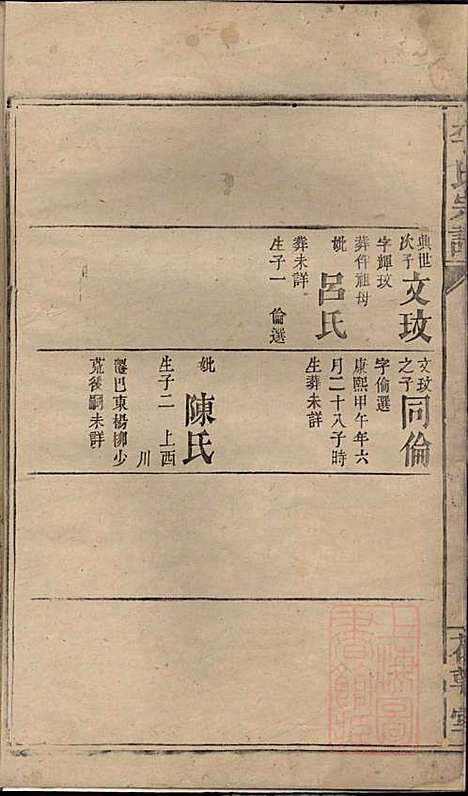 典世
次子
文玟
字輝玟
葬侔祖母
妣 呂氏
葬未詳
生子一 倫選
文玟
之子
同倫
字倫選
康熙甲午年六
月二十八子時
生葬未詳
妣 陳氏
生子二 上西
川
巴東楊柳少
荒後嗣未詳
氏宗譜